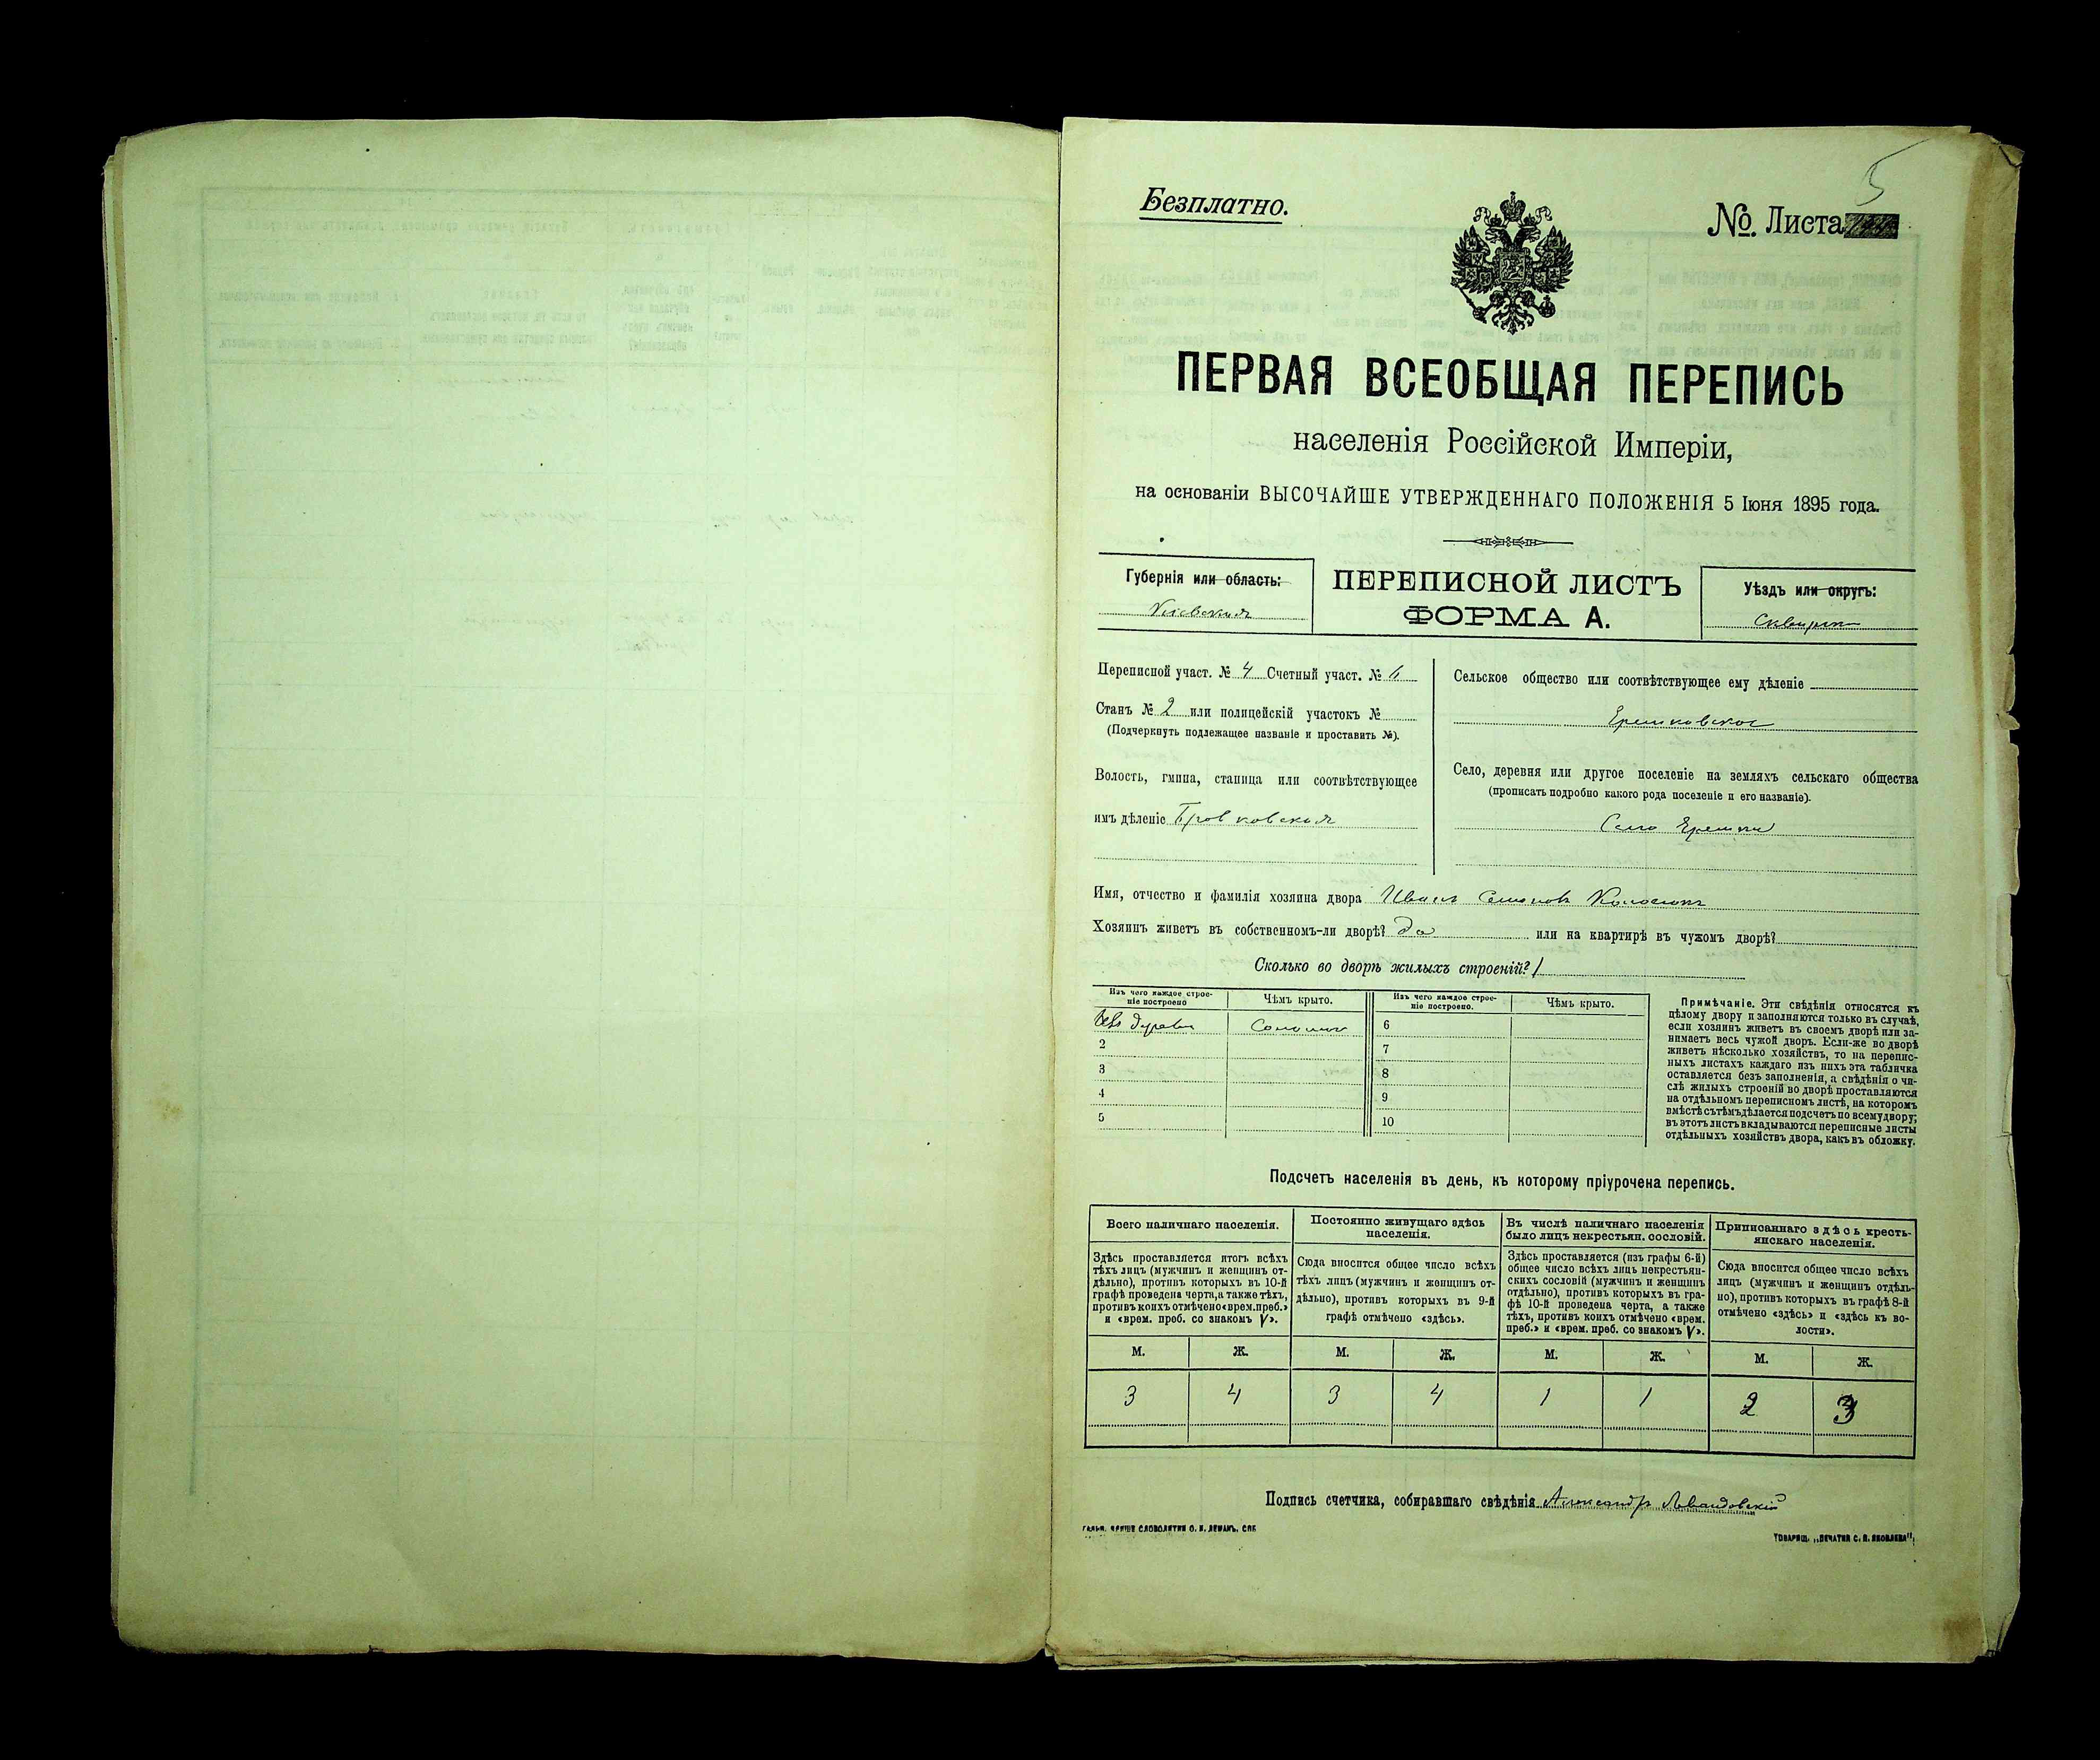 5
Безплатно.
№ Листа
ПЕРВАЯ ВСЕОБЩАЯ ПЕРЕПИСЬ
населенія Россійской Имперіи,
на основаніи ВЫСОЧАЙШЕ УТВЕРЖДЕННАГО ПОЛОЖЕНІЯ 5 Іюня 1895 года.
Губернія или область:
Кіевская
ПЕРЕПИСНОЙ ЛИСТЪ
ФОРМА А.
Уѣздъ или округъ:
Переписной участ. № 4 Счетный участ. №
Станъ № 2 или полицейскій участокъ №
(Подчеркнуть подлежащее названіе и проставить №).
Волость, гмина, станица или соотвѣтствующее
имъ дѣленіе Бровковская
Сельское общество или соотвѣтствующее ему дѣленіе
Ерешковское
Село, деревня или другое поселеніе на земляхъ сельскаго общества
(прописать подробно какого рода поселеніе и его названіе).
Село Ерешки
Имя, отчество и фамилія хозяина двора Иванъ Семеновъ
Хозяинъ живетъ въ собственномъ-ли дворѣ? да или на квартирѣ въ чужомъ дворѣ?
Сколько во дворѣ жилыхъ строеній? 1
Изъ чего каждое строе-
ніе построено
Чѣмъ крыто.
Изъ чего каждое строе-
ніе построено.
Чѣмъ крыто.
Изъ дерева
Соломою
2
3
4
5
6
7
8
9
10
Примѣчаніе. Эти свѣдѣнія относятся къ
цѣлому двору и заполняются только въ случаѣ,
если хозяинъ живетъ въ своемъ дворѣ или за-
нимаетъ весь чужой дворъ. Если-же во дворѣ
живетъ нѣсколько хозяйствъ, то на перепис-
ныхъ листахъ каждаго изъ нихъ эта табличка
оставляется безъ заполненія, а свѣдѣнія о чи-
слѣ жилыхъ строеній во дворѣ проставляются
на отдѣльномъ переписномъ листѣ, на которомъ
вмѣстѣ съ тѣмъ дѣлается подсчетъ по всему двору;
въ этотъ листъ вкладываются переписные листы
отдѣльныхъ хозяйствъ двора, какъ въ обложку.
Подсчетъ населенія въ день, къ которому пріурочена перепись.
Всего наличнаго населенія.
Здѣсь проставляется итогъ всѣхъ
тѣхъ лицъ (мужчинъ и женщинъ от-
дѣльно), противъ которыхъ въ 10-й
графѣ проведена черта, а также тѣхъ,
противъ коихъ отмѣчено «врем. преб.»
и «врем. преб. со знакомъ V».
Постоянно живущаго здѣсь
населенія.
Сюда вносится общее число всѣхъ
тѣхъ лицъ (мужчинъ и женщинъ от-
дѣльно), противъ которыхъ въ 9-й
графѣ отмѣчено «здѣсь».
Въ числѣ наличнаго населенія
было лицъ некрестьян. сословій.
Здѣсь проставляется (изъ графы 6-й)
общее число всѣхъ лицъ некрестьян-
скихъ сословій (мужчинъ и женщинъ
отдѣльно), противъ которыхъ въ гра-
фѣ 10-й проведена черта, а также
тѣхъ, противъ коихъ отмѣчено «врем.
преб.» и «врем. преб. со знакомъ V».
Приписаннаго здѣсь кресть-
янскаго населенія.
Сюда вносится общее число всѣхъ
лицъ (мужчинъ и женщинъ отдѣль-
но), противъ которыхъ въ графѣ 8-й
отмѣчено «здѣсь» и «здѣсь къ во-
лости».
М. Ж. М. Ж. М. Ж. М. Ж.
3 4 3 4 1 1 2 3
Подпись счетчика, собиравшаго свѣдѣнія Александръ Левандовскій
СЛОВОЛИТНИ О. И. ЛЕМАНЪ, СПБ
ТОВАРИЩ. „ПЕЧАТНЯ С. П. ЯКОВЛЕВА“;